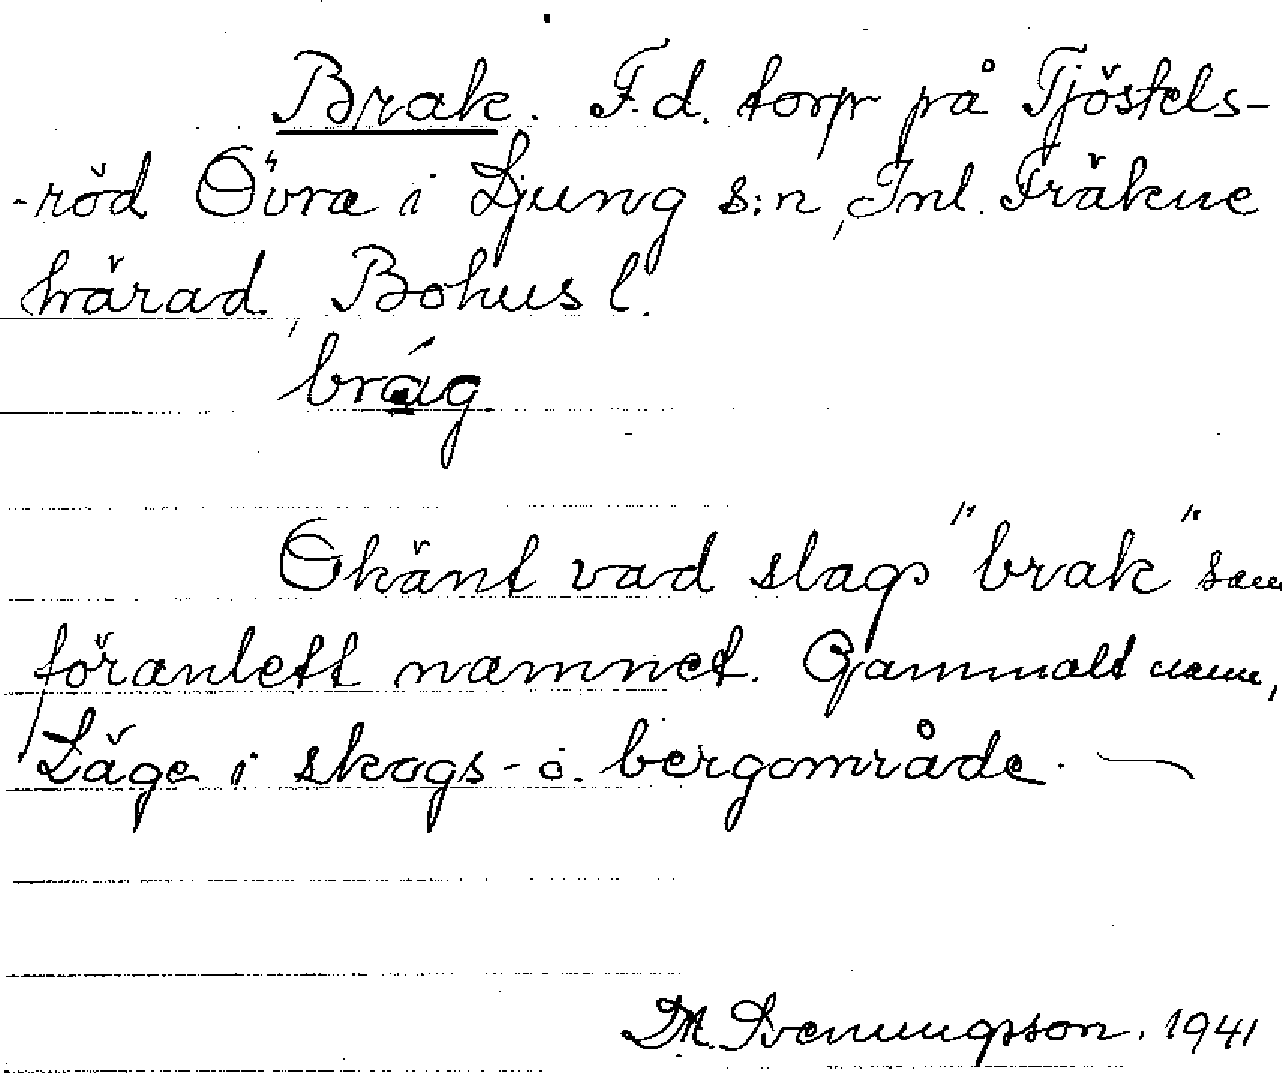 Brak. F.d. torp på Tjöstels-
-röd Övra i Ljung s:n, Inl. Fräkne
härad, Bohusl.
bråg
Okänt vad slags "brak" som
föranlett namnet. Gammalt namn,
Läge i skogs- o. bergområde.
M. Svenungsson. 1941